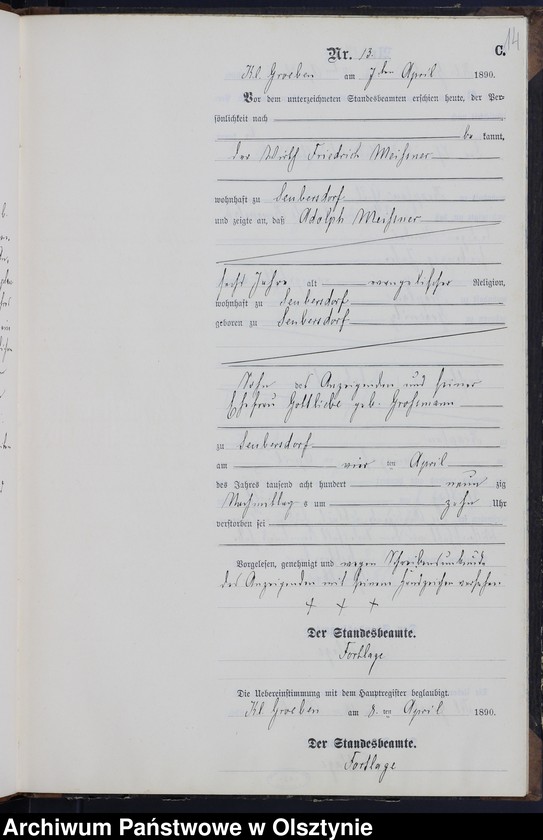 14
Nr. 13. C.
Kl. Groeben am 7ten April 1890.
Vor dem unterzeichneten Standesbeamten erschien heute, der Per-
sönlichkeit nach
be kannt,
der Wirth Friedrich Meißner
wohnhaft zu Seubersdorf
und zeigte an, daß Adolph Meißner
sechs Jahre alt evangelischer Religion,
wohnhaft zu Seubersdorf
geboren zu Seubersdorf
Sohn des Anzeigenden und seiner
Ehefrau Gottliebe geb. Großmann
zu Seubersdorf
am vier ten April
des Jahres tausend acht hundert neun zig
Nachmittag s um zehn Uhr
verstorben sei
Vorgelesen, genehmigt und wegen Schreibensunkunde
des Anzeigenden mit seinem Handzeichen versehen.
+ + +
Der Standesbeamte.
Fortlage
Die Uebereinstimmung mit dem Hauptregister beglaubigt.
Kl. Groeben am 8. ten April 1890.
Der Standesbeamte.
Fortlage
Archiwum Państwowe w Olsztynie